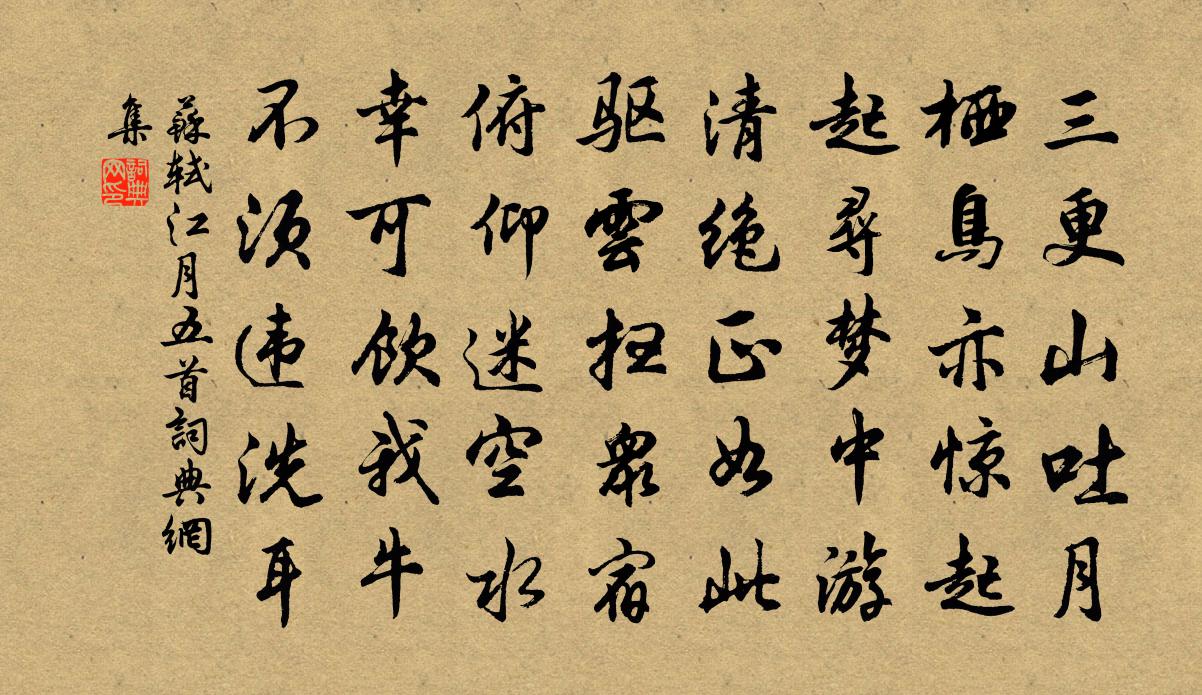 三更山吐月
栖鳥亦惊起
起尋梦中游
清绝正如此
驱雲扫衆宿
俯仰迷空水
幸可飲我牛
不须违洗耳
蘇轼江月五首詞典網
集
詞典
网印